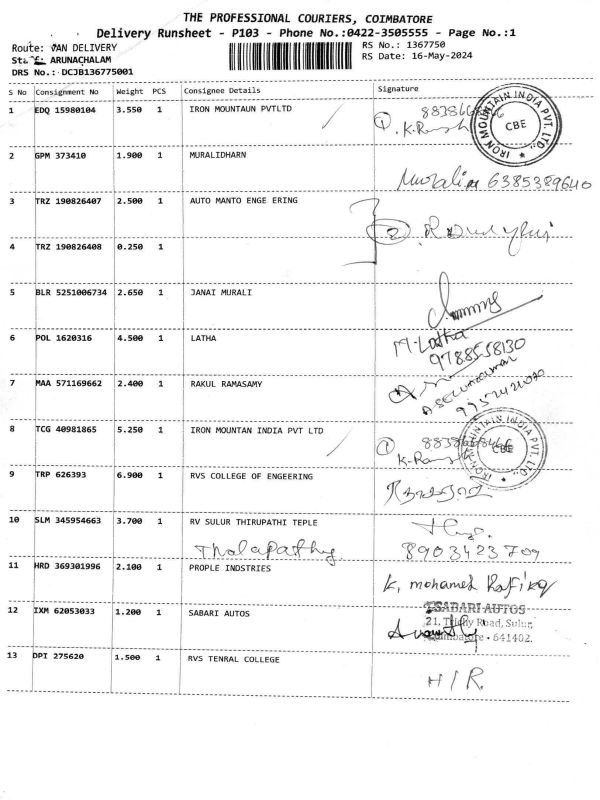 THE PROFESSIONAL COURIERS, COIMBATORE
Delivery Runsheet - P103 - Phone No.:0422-3505555 - Page No.:1
Route: VAN DELIVERY RS No.: 1367750
ARUNACHALAM RS Date: 16-May-2024
DRS No.: DCJB136775001
S No Consignment No Weight PCS Consignee Details Signature
1 EDQ 15980104 3.550 1 IRON MOUNTAUN PVTLTD
IRON MOUNTAIN INDIA PVT. LTD., CBE
2 GPM 373410 1.900 1 MURALIDHARN
6385389640
3 TRZ 190826407 2.500 1 AUTO MANTO ENGE ERING
4 TRZ 190826408 0.250 1
5 BLR 5251006734 2.650 1 JANAI MURALI
6 POL 1620316 4.500 1 LATHA
M-Latha
9788558130
7 MAA 571169662 2.400 1 RAKUL RAMASAMY
8 TCG 40981865 5.250 1 IRON MOUNTAN INDIA PVT LTD
CBE
9 TRP 626393 6.900 1 RVS COLLEGE OF ENGEERING
10 SLM 345954663 3.700 1 RV SULUR THIRUPATHI TEPLE
Thalapathy 8903423709
11 HRD 369301996 2.100 1 PROPLE INDSTRIES
K. mohamed Rafiq
12 IXM 62053033 1.200 1 SABARI AUTOS
SABARI AUTOS
21, Trichy Road, Sulur,
Coimbatore - 641402.
13 DPI 275620 1.500 1 RVS TENRAL COLLEGE
H/R.